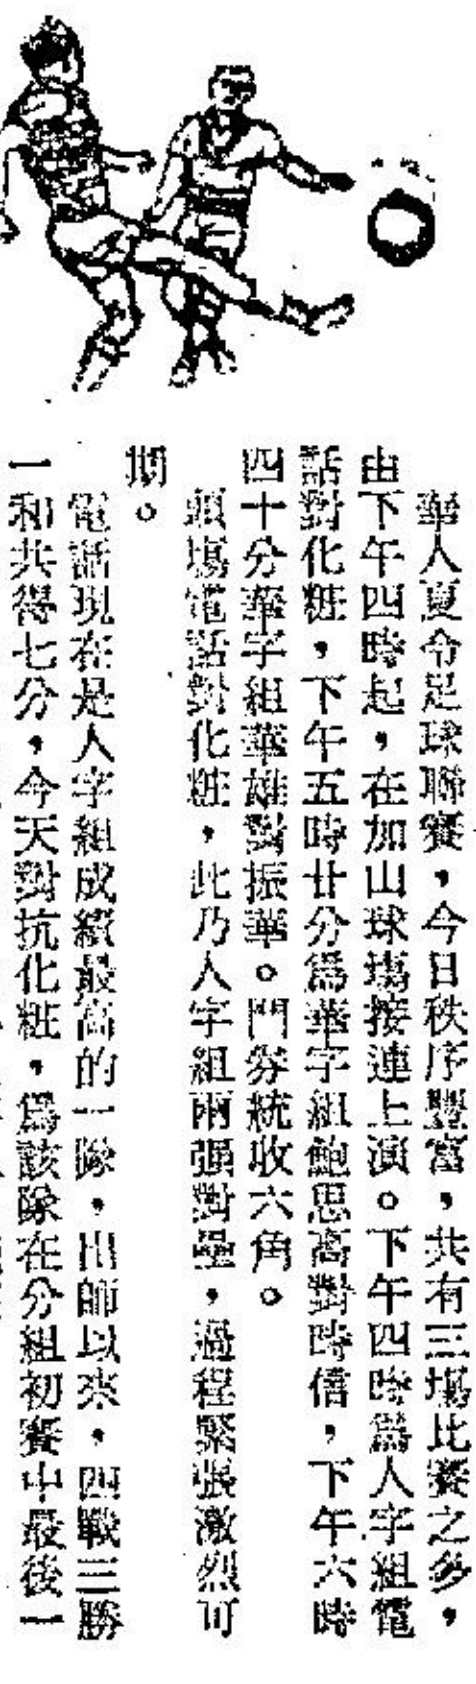 華人夏令足球聯賽，今日秩序豐富，共有三塲比賽之多，
由下午四時起，在加山球塲接連上演。下午四時爲人字組電
話對化粧，下午五時廿分爲華字組鮑思高對時信，下午六時
四十分華字組華雄對振華。門券統收六角。
頭塲電話對化粧，此乃人字組兩强對壘，過程緊張激烈可
期。
電話現在是人字組成績最高的一隊，出師以來，四戰三勝
一和共得七分，今天對抗化粧，爲該隊在分組初賽中最後一